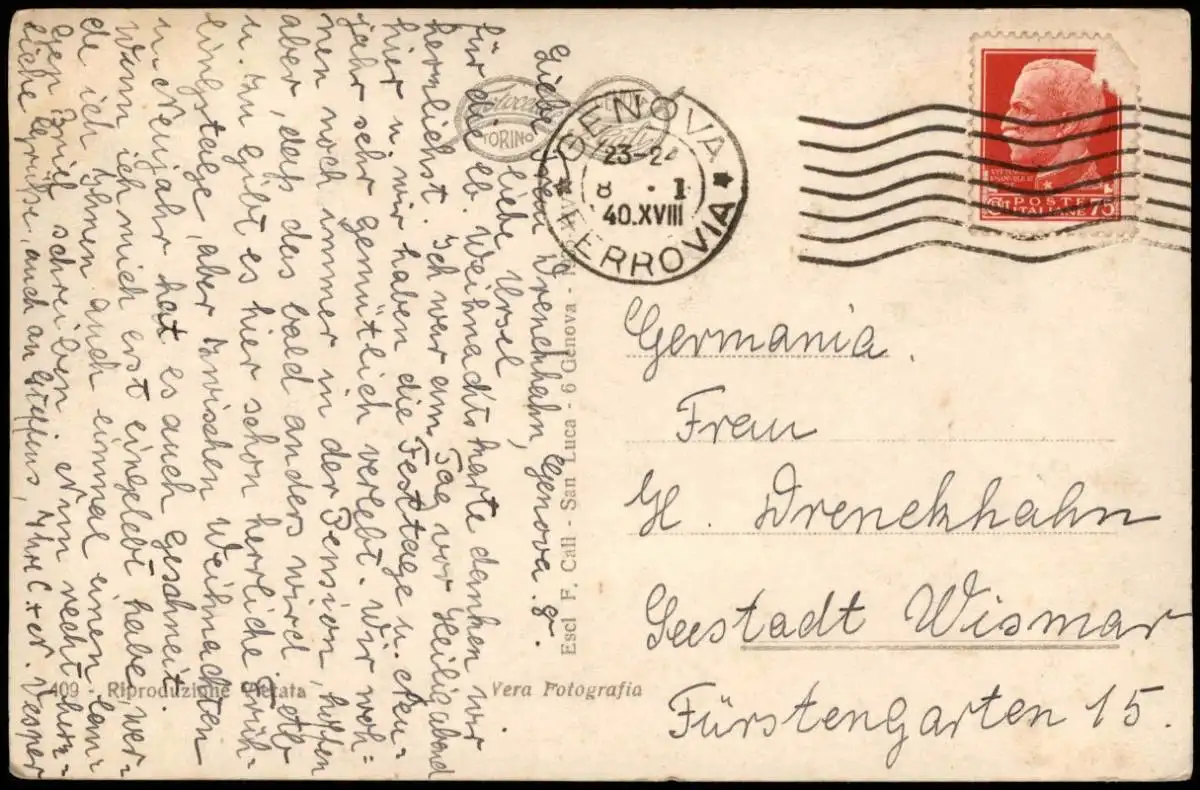 Liebe Frau Drenckhahn, Genova. 8.
liebe Ursel
für die lb. Weihnachtskarte danken wir
herzlichst. Ich war am Tag vor Heiligabend
hier u. wir haben die Festtage u. Neu=
jahr sehr gemütlich verlebt. Wir woh=
nen noch immer in der Pension, hoffen
aber, daß das bald anders wird. Ob
u. zu gibt es hier schon herrliche Früh=
lingstage, aber zwischen Weihnachten
u. Neujahr hat es auch geschneit.
Wenn ich mich erst eingelebt habe, wer=
de ich Ihnen auch einmal einen lan=
gen Brief schreiben. Nun recht herz=
liche Grüße, auch an Steffens, Ihre C + W. Vesper
Fotocel
TORINO
GENOVA
FERROVIA
23-24
8 . I
40.XVIII
POSTE
ITALIANE 75
Escl F. Call - San Luca - 6 Genova -
Germania.
Frau
H. Drenckhahn
Seestadt Wismar
Fürstengarten 15.
409 - Riproduzione Vietata
Vera Fotografia